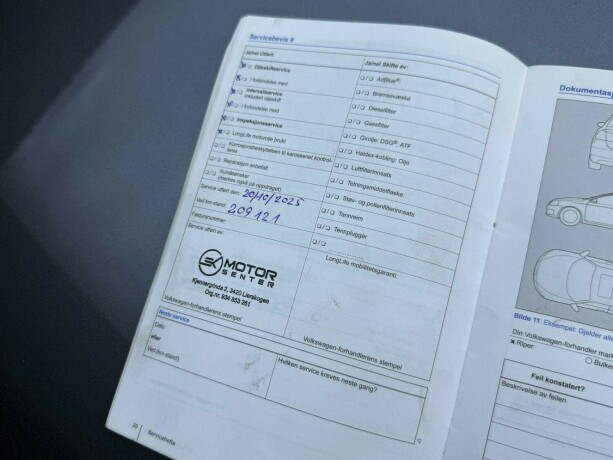 Servicebevis 8
ja/nei Utført:
Oljeskiftservice
I forbindelse med
Intervallservice
inkludert oljeskift
I forbindelse med
Inspeksjonsservice
LongLife motorolje brukt
Korrosjonsbeskyttelsen til karosseriet kontrol-
leres
Reparasjon anbefalt
Kundeønsker
(merkes også på oppdraget)
Service utført den: 20/10/2025
Ved km-stand: 209121
Fakturanummer:
Service utført av:
SK MOTOR
SENTER
Kjennergrinda 2, 3420 Lierskogen
Org.nr. 934 853 261
Volkswagen-forhandlerens stempel
ja/nei Skifte av:
AdBlue®
Bremsevæske
Dieselfilter
Gassfilter
Girolje: DSG® ATF
Haldex-kobling: Olje
Luftfilterinnsats
Tetningsmiddelflaske
Støv- og pollenfilterinnsats
Tannreim
Tennplugger
LongLife mobilitetsgaranti
Volkswagen-forhandlerens stempel
Neste service
Dato:
eller
Ved (km-stand):
Hvilken service kreves neste gang?
Servicehefte
Dokumentasj
Bilde 11 Eksempel: Gjelder alle
Din Volkswagen-forhandler mark
× Riper:
Bulke
Feil konstatert?
Beskrivelse av feilen